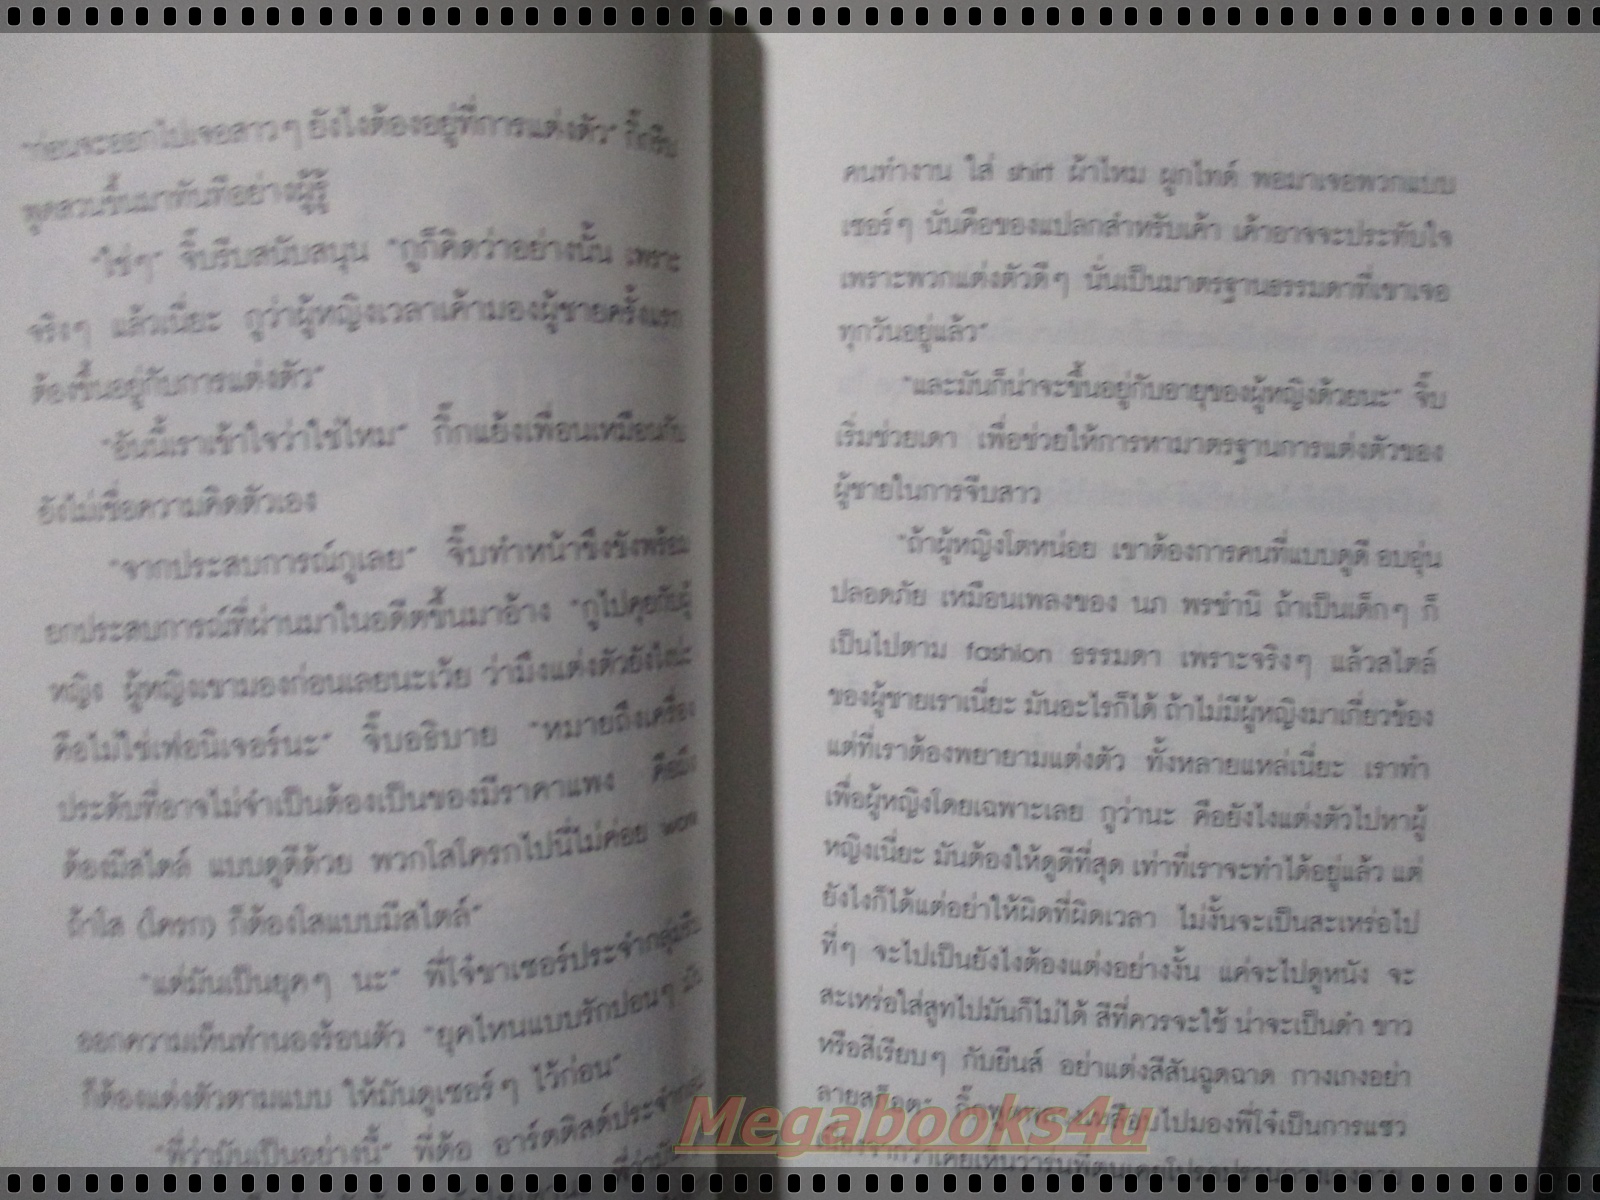 "ก่อนจะออกไปเจอสาวๆ ยังไงต้องอยู่ที่การแต่งตัว" กิ๊กรีบ
พูดสวนขึ้นมาทันทีอย่างผู้รู้
"ใช่ๆ" จิ๊บรีบสนับสนุน "กูก็คิดว่าอย่างนั้น เพราะ
จริงๆ แล้วเนี่ยะ กูว่าผู้หญิงเวลาเค้ามองผู้ชายครั้งแรก
ต้องขึ้นอยู่กับการแต่งตัว"
"อันนี้เราเข้าใจว่าใช่ไหม" กิ๊กแย้งเพื่อนเหมือนกับ
ยังไม่เชื่อความคิดตัวเอง
"จากประสบการณ์กูเลย" จิ๊บทำหน้าขึงขังพร้อม
ยกประสบการณ์ที่ผ่านมาในอดีตขึ้นมาอ้าง "กูไปคุยกับผู้
หญิง ผู้หญิงเขามองก่อนเลยนะเว้ย ว่ามึงแต่งตัวยังไงน่ะ
คือไม่ใช่เฟอนิเจอร์นะ" จิ๊บอธิบาย "หมายถึงเครื่อง
ประดับที่อาจไม่จำเป็นต้องเป็นของมีราคาแพง คือมึง
ต้องมีสไตล์ แบบดูดีด้วย พวกโสโครกไปนี่ไม่ค่อย wow
ถ้าโส (โครก) ก็ต้องโสแบบมีสไตล์"
"แต่มันเป็นยุคๆ นะ" พี่โจ๋ขาเซอร์ประจำกลุ่ม
ออกความเห็นทำนองร้อนตัว "ยุคไหนแบบรักปอนๆ
ก็ต้องแต่งตัวตามแบบ ให้มันดูเซอร์ๆ ไว้ก่อน"
"พี่ว่ามันเป็นอย่างนี้" พี่ต้อ อาร์ตติสต์ประจำ
คนทำงาน ใส่ shirt ผ้าไหม ผูกไทด์ พอมาเจอพวกแบบ
เซอร์ๆ นั่นคือของแปลกสำหรับเค้า เค้าอาจจะประทับใจ
เพราะพวกแต่งตัวดีๆ นั่นเป็นมาตรฐานธรรมดาที่เขาเจอ
ทุกวันอยู่แล้ว"
"และมันก็น่าจะขึ้นอยู่กับอายุของผู้หญิงด้วยนะ" จิ๊บ
เริ่มช่วยเดา เพื่อช่วยให้การหามาตรฐานการแต่งตัวของ
ผู้ชายในการจีบสาว
"ถ้าผู้หญิงโตหน่อย เขาต้องการคนที่แบบดูดี อบอุ่น
ปลอดภัย เหมือนเพลงของ นภ พรชำนิ ถ้าเป็นเด็กๆ ก็
เป็นไปตาม fashion ธรรมดา เพราะจริงๆ แล้วสไตล์
ของผู้ชายเราเนี่ยะ มันอะไรก็ได้ ถ้าไม่มีผู้หญิงมาเกี่ยวข้อง
แต่ที่เราต้องพยายามแต่งตัว ทั้งหลายแหล่เนี่ยะ เราทำ
เพื่อผู้หญิงโดยเฉพาะเลย กูว่านะ คือยังไงแต่งตัวไปหาผู้
หญิงเนี่ยะ มันต้องให้ดูดีที่สุด เท่าที่เราจะทำได้อยู่แล้ว แต่
ยังไงก็ได้แต่อย่าให้ผิดที่ผิดเวลา ไม่งั้นจะเป็นสะเหร่อไป
ที่ๆ จะไปเป็นยังไงต้องแต่งอย่างงั้น แค่จะไปดูหนัง จะ
สะเหร่อใส่สูทไปมันก็ไม่ได้ สีที่ควรจะใช้ น่าจะเป็นดำ ขาว
หรือสีเรียบๆ กับยีนส์ อย่าแต่งสีสันฉูดฉาด กางเกงอย่า
ลายสก็อต" กิ๊กพูดพลางเหลียบไปมองพี่โจ๋เป็นการแซว
Megabooks4u